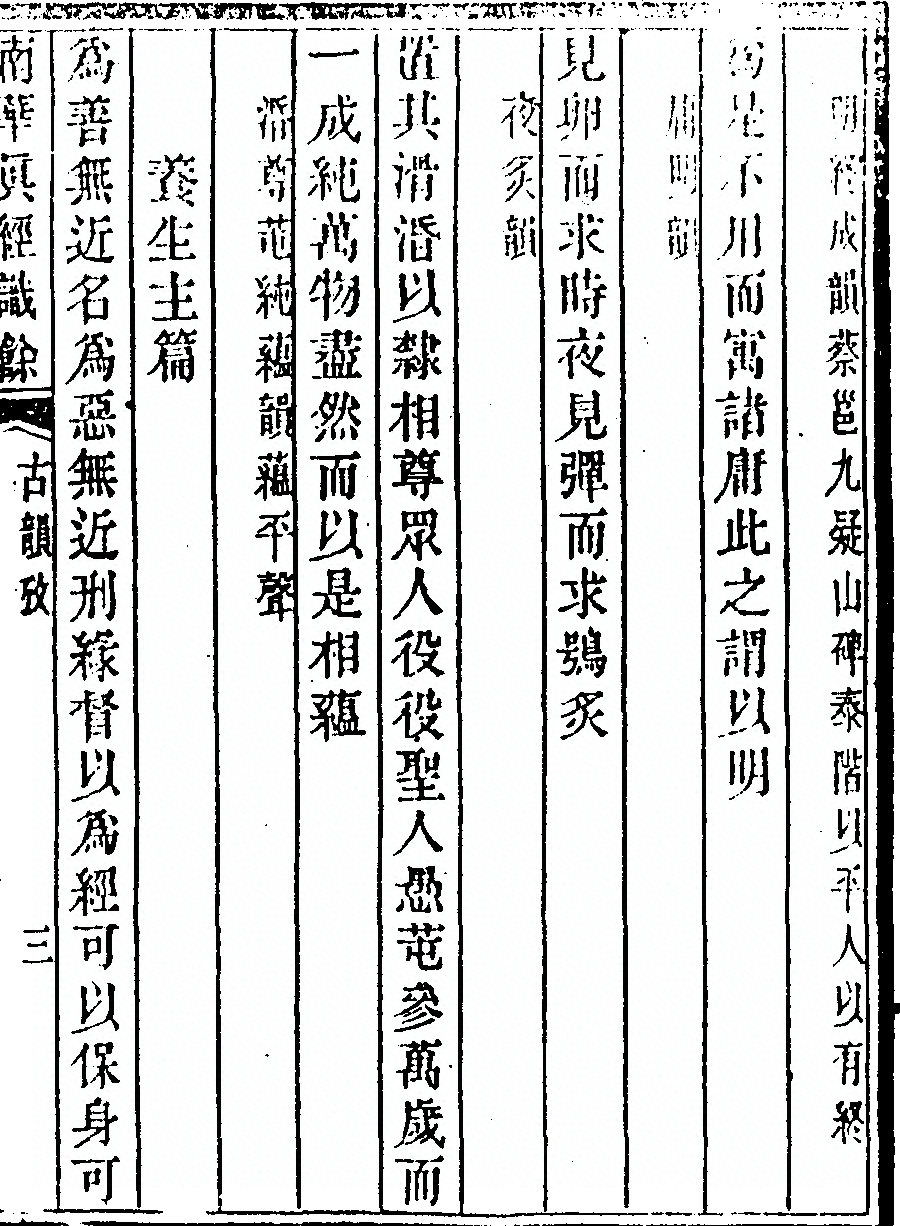 明終成韻蔡邕九疑山碑泰階以平人以有終
爲是不用而寓諸庸此之謂以明
庸明韻
見卵而求時夜見彈而求鴞炙
夜炙韻
置其滑涽以隸相尊眾人役役聖人愚芚參萬歲而
一成純萬物盡然而以是相蘊
涽尊芚純蘊韻蘊平聲
養生主篇
爲善無近名爲惡無近刑緣督以爲經可以保身可
南華眞經識餘 古韻攷 三